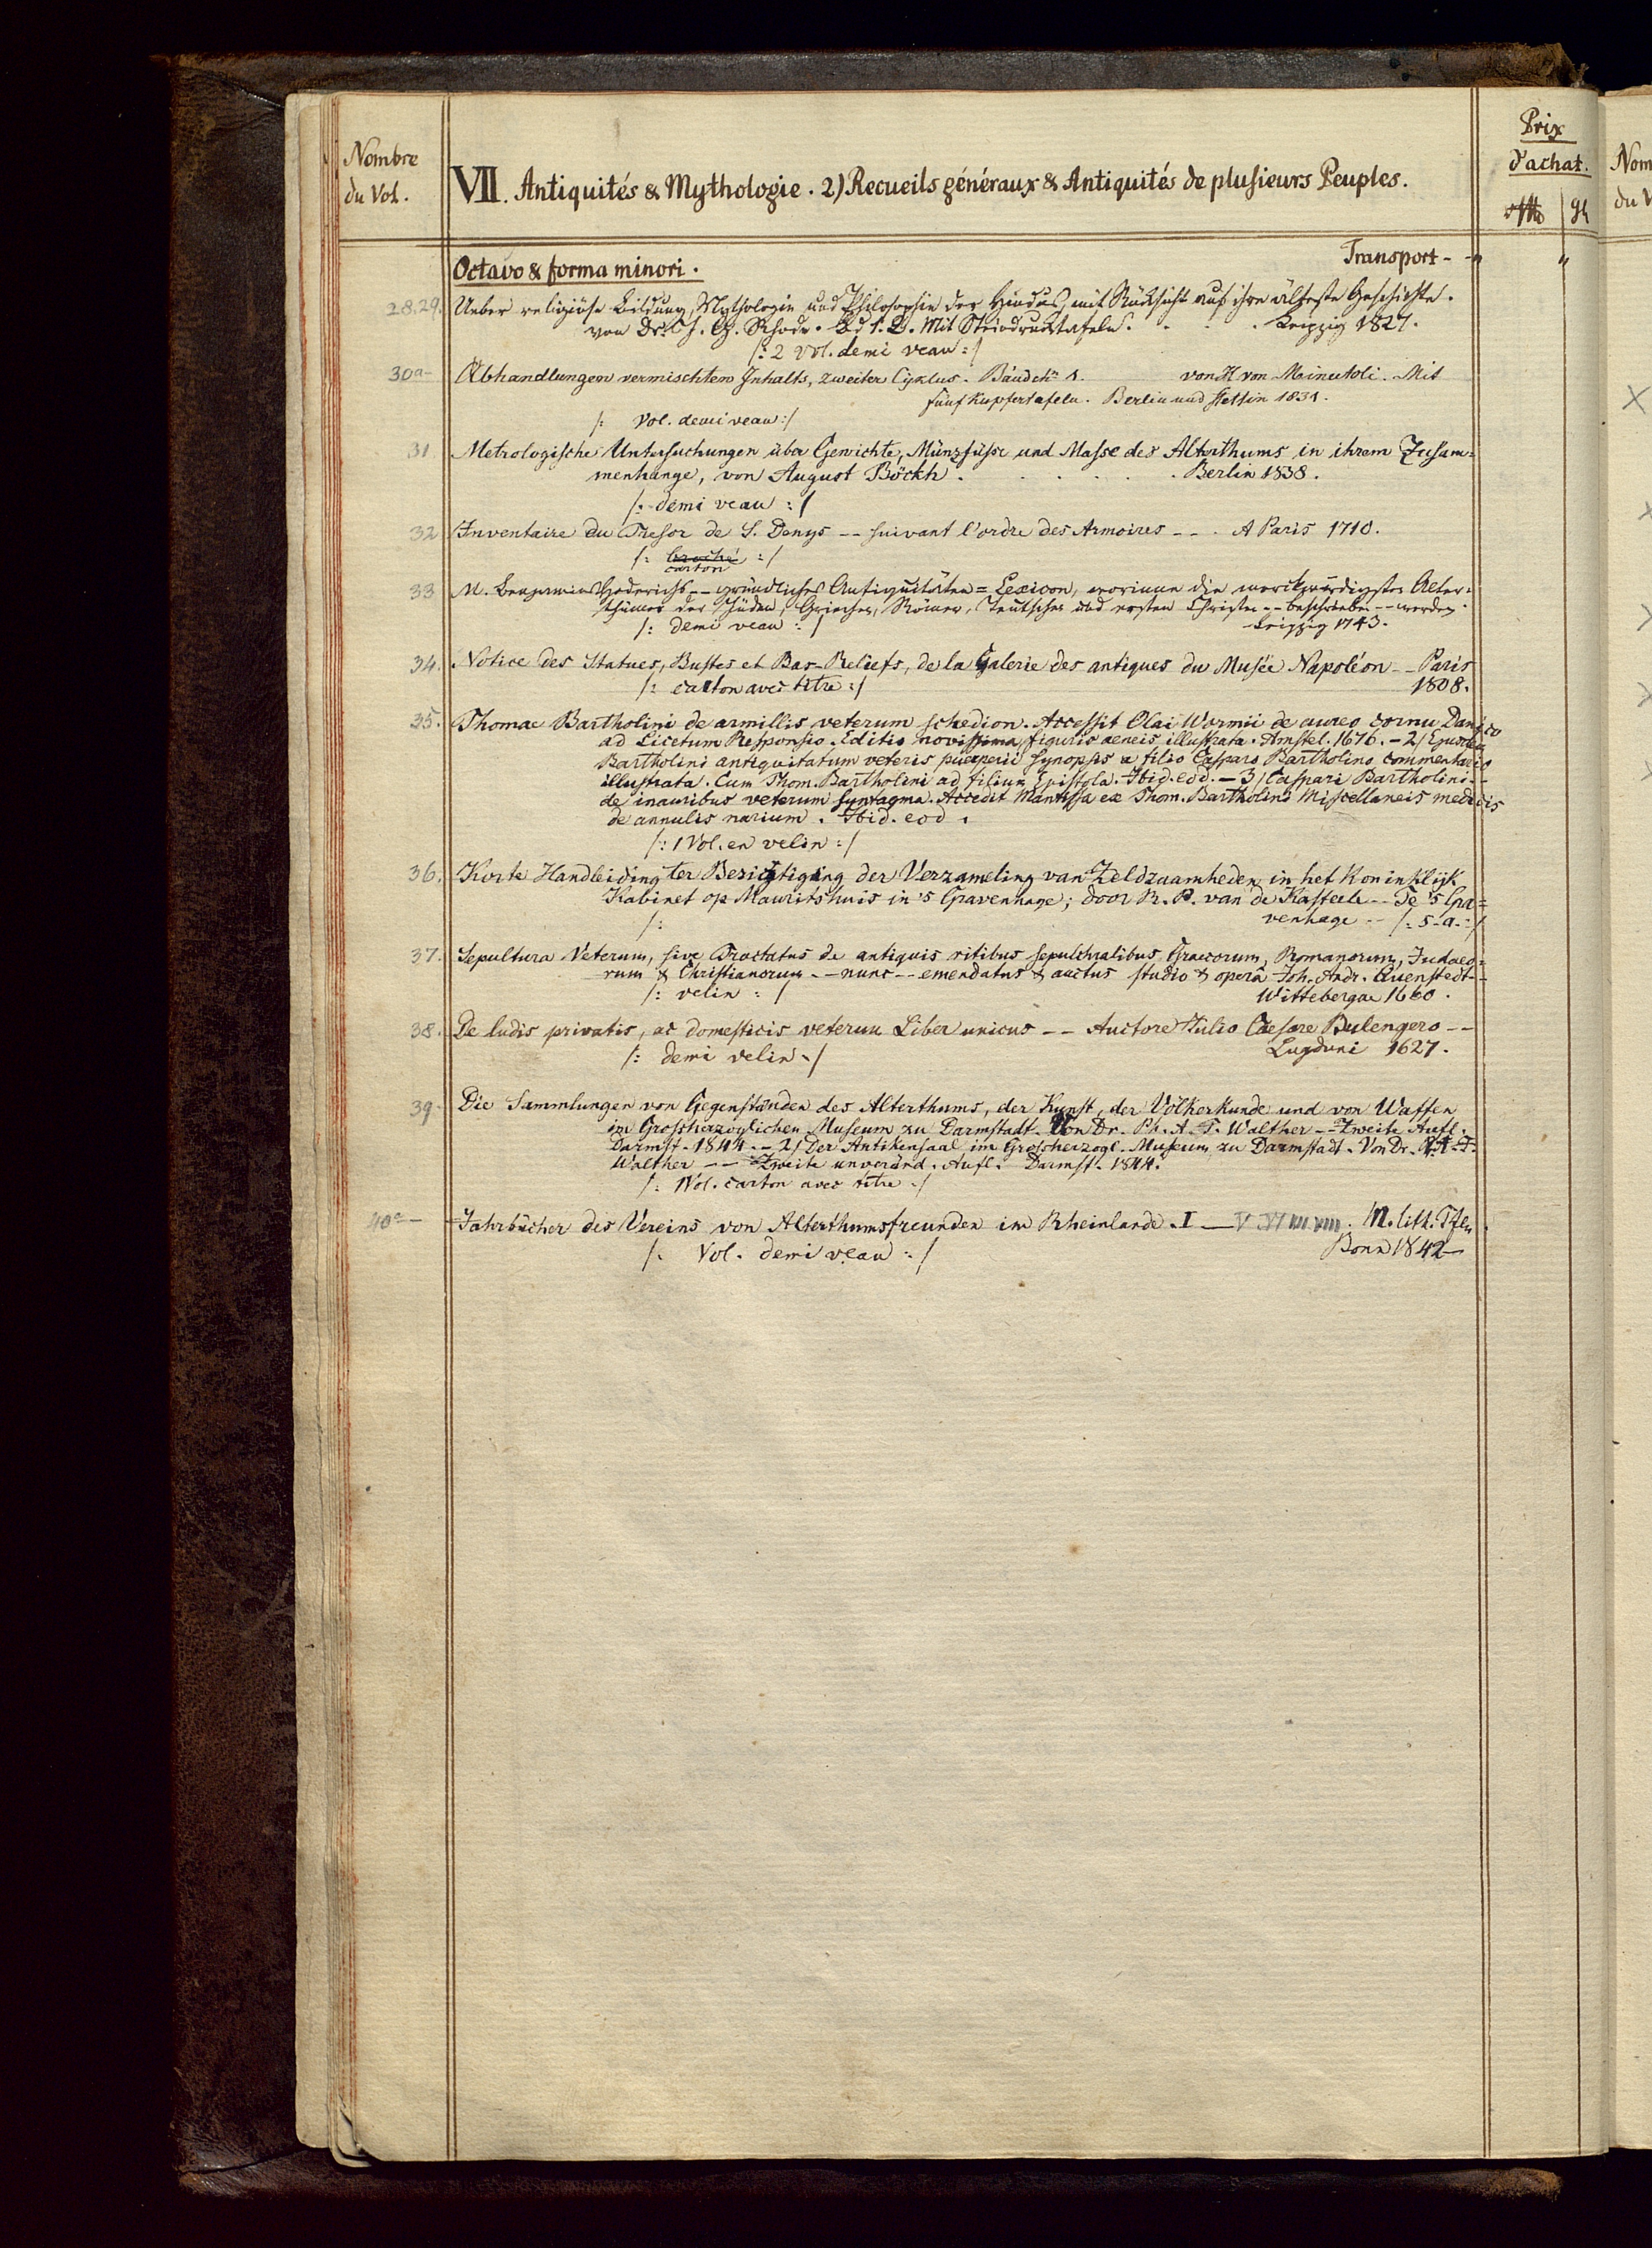 Nombre
du Vol.
VII. Antiquités & Mythologie. 2) Recueils généraux & Antiquités de plusieurs Peuples.
Prix
d'achat.
gh
Nom
du V
Octavo & forma minori.
Transport - - "
"
28.29. Ueber religiöse Bildung, Mythologie und Philosophie der Hindus, mit Rücksicht auf ihre älteste Geschichte.
von Dr. J. G. Rhode. Bd 1. 2. Mit Steindrucktafeln. . . . . Leipzig 1827.
/: 2 Vol. demi veau :/
30a- Abhandlungen vermischten Inhalts, zweiter Cyklus. Bändch 1. von H von Meinutoli. Mit
fünf Kupfertafeln. Berlin und Stettin 1831.
/: Vol. demi veau :/
31 Metrologische Untersuchungen über Gewichte, Münzfüsse und Masse des Alterthums in ihrem Zusam=
menhange, von August Böckh. . . . . . Berlin 1838.
/: demi veau :/
32 Inventaire du Tresor de S. Denys -- suivant l'ordre des Armoires -- . A Paris 1710.
/: broché :/
carton
33 M. Benjamin Hederichs -- gründliches Antiquitäten = Lexicon, worinne die merckwürdigsten Alter=
thümer der Jüden, Griechen, Römer, Teutschen und ersten Christen -- beschrieben -- werden.
/: demi veau :/ Leipzig 1743.
34. Notice des Statues, Bustes et Bas-Reliefs, de la Galerie des antiques du Musée Napoléon -- Paris
/: carton avec titre :/ 1808.
35. Thomae Bartholini de armillis veterum schedion. Accessit Olai Wormii de aureo cornu Danico
ad Licetum Responsio. Editio novissima figuris aeneis illustrata. Amstel. 1676. - 2/ Ejusdem
Bartholini antiquitatum veteris puerperii Synopsis a filio Casparo Bartholino commentario
illustrata. Cum Thom. Bartholini ad filium Epistola. Ibid. eod. - 3/ Caspari Bartholini --
de inauribus veterum syntagma. Accedit Mantissa ex Thom. Bartholini Miscellaneis medicis
de annulis narium. Ibid. eod.
/: 1 Vol. en velin :/
36. Korte Handleiding ter Bezigtiging der Verzameling van Zeldzaamheden in het Koninklijk
Kabinet op Mauritshuis in 's Gravenhage; door R. P. van de Kasteele -- Te 's Gra=
/: venhage -- /: s. a. :/
37. Sepultura Veterum, sive Tractatus de antiquis ritibus sepulchralibus Graecorum, Romanorum, Judaeo=
rum & Christianorum -- nunc -- emendatus & auctus studio & operâ Joh. Andr. Quenstedt --
/: velin :/ Wittebergae 1660.
38. De ludis privatis, ac domesticis veterum Liber unicus -- Auctore Julio Caesare Bulengero --
/: demi velin :/ Lugduni 1627.
39. Die Sammlungen von Gegenständen des Alterthums, der Kunst, der Völkerkunde und von Waffen
im Grossherzoglichen Museum zu Darmstadt. Von Dr. Ph. A. F. Walther -- Zweite Aufl.
Darmst. 1844. -- 2/ Der Antikensaal im Grossherzogl. Museum zu Darmstadt. Von Dr. P. A. F.
Walther -- Zweite unveränd. Aufl. Darmst. 1844.
/: 1 Vol. carton avec titre :/
40a- Jahrbücher des Vereins von Alterthumsfreunden im Rheinlande. I — V VI VII VIII. M. lith. Tfeln.
/: Vol. demi veau :/ Bonn 1842—